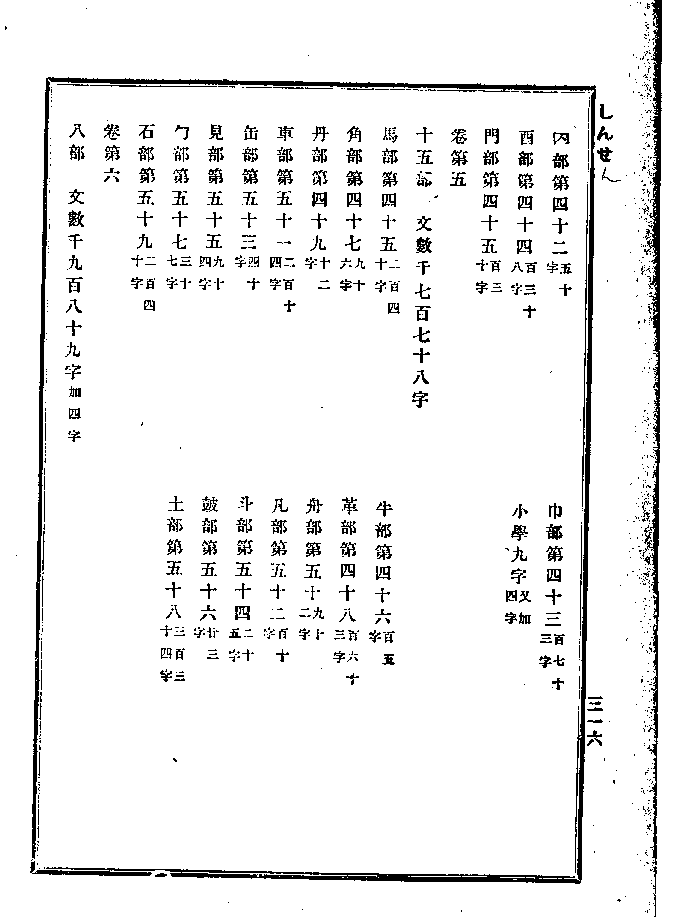 しんせん
网部第四十二五十字　巾部第四十三百七十三字
西部第四十四百三十八字　小學九字又加四字
門部第四十五百三十字
卷第五
十五部　文數千七百七十八字
馬部第四十五二百四十字　牛部第四十六百五字
角部第四十七九十六字　革部第四十八百六十三字
丹部第四十九十二字　舟部第五十九十二字
車部第五十一二百十四字　凡部第五十二百十字
缶部第五十三四十字　斗部第五十四二十五字
見部第五十五九十四字　鼓部第五十六廿三字
勹部第五十七三十七字　土部第五十八三百三十四字
石部第五十九二百四十字
卷第六
八部　文數千九百八十九字加四字
三一六